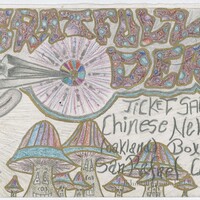 GRATEFUL
DEAD
TICKET SA
Chinese Ne
Oakland Box
San Rafael C